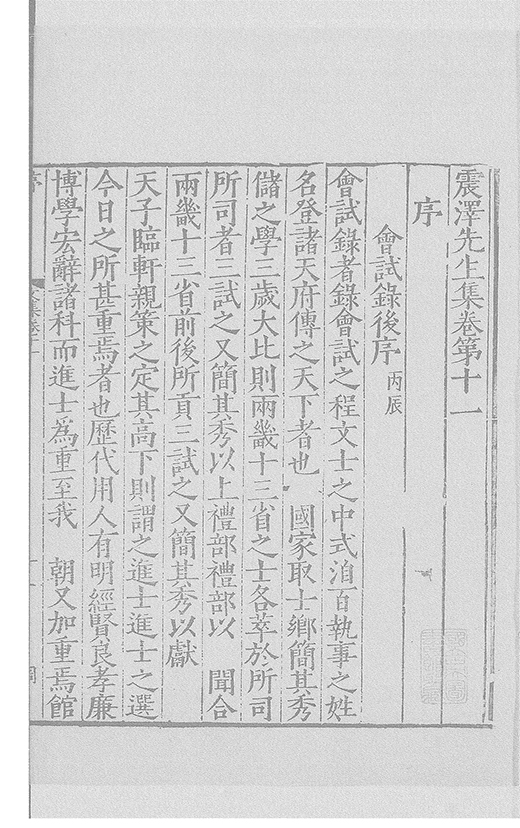 震澤先生集卷第十一
序
會試錄後序 丙辰
會試錄者錄會試之程文士之中式洎百執事之姓
名登諸天府傳之天下者也 國家取士鄉簡其秀
儲之學三歲大比則兩畿十三省之士各萃於所司
所司者三試之又簡其秀以上禮部禮部以 聞合
兩畿十三省前後所貢三試之又簡其秀以獻
天子臨軒親策之定其高下則謂之進士進士之選
今日之所甚重焉者也歷代用人有明經賢良孝廉
博學宏辭諸科而進士為重至我 朝又加重焉館